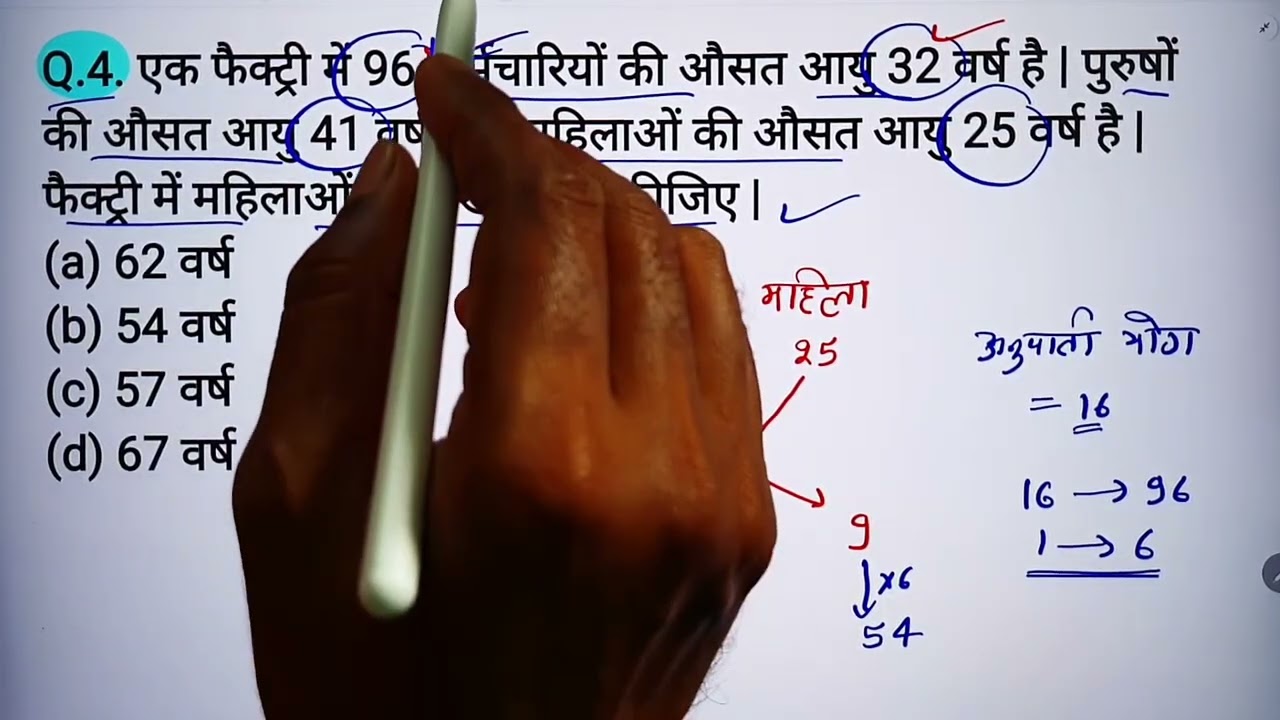 Q.4. एक फैक्ट्री में 96 की औसत आयु 32 वर्ष है | पुरुषों
की औसत आयु 41 की औसत आयु 25 वर्ष है |
फैक्ट्री में महिलाओं |
(a) 62 वर्ष
(b) 54 वर्ष
(c) 57 वर्ष
(d) 67 वर्ष
महिला
25
9
×6
54
अनुपाती योग
= 16
16 → 96
1 → 6